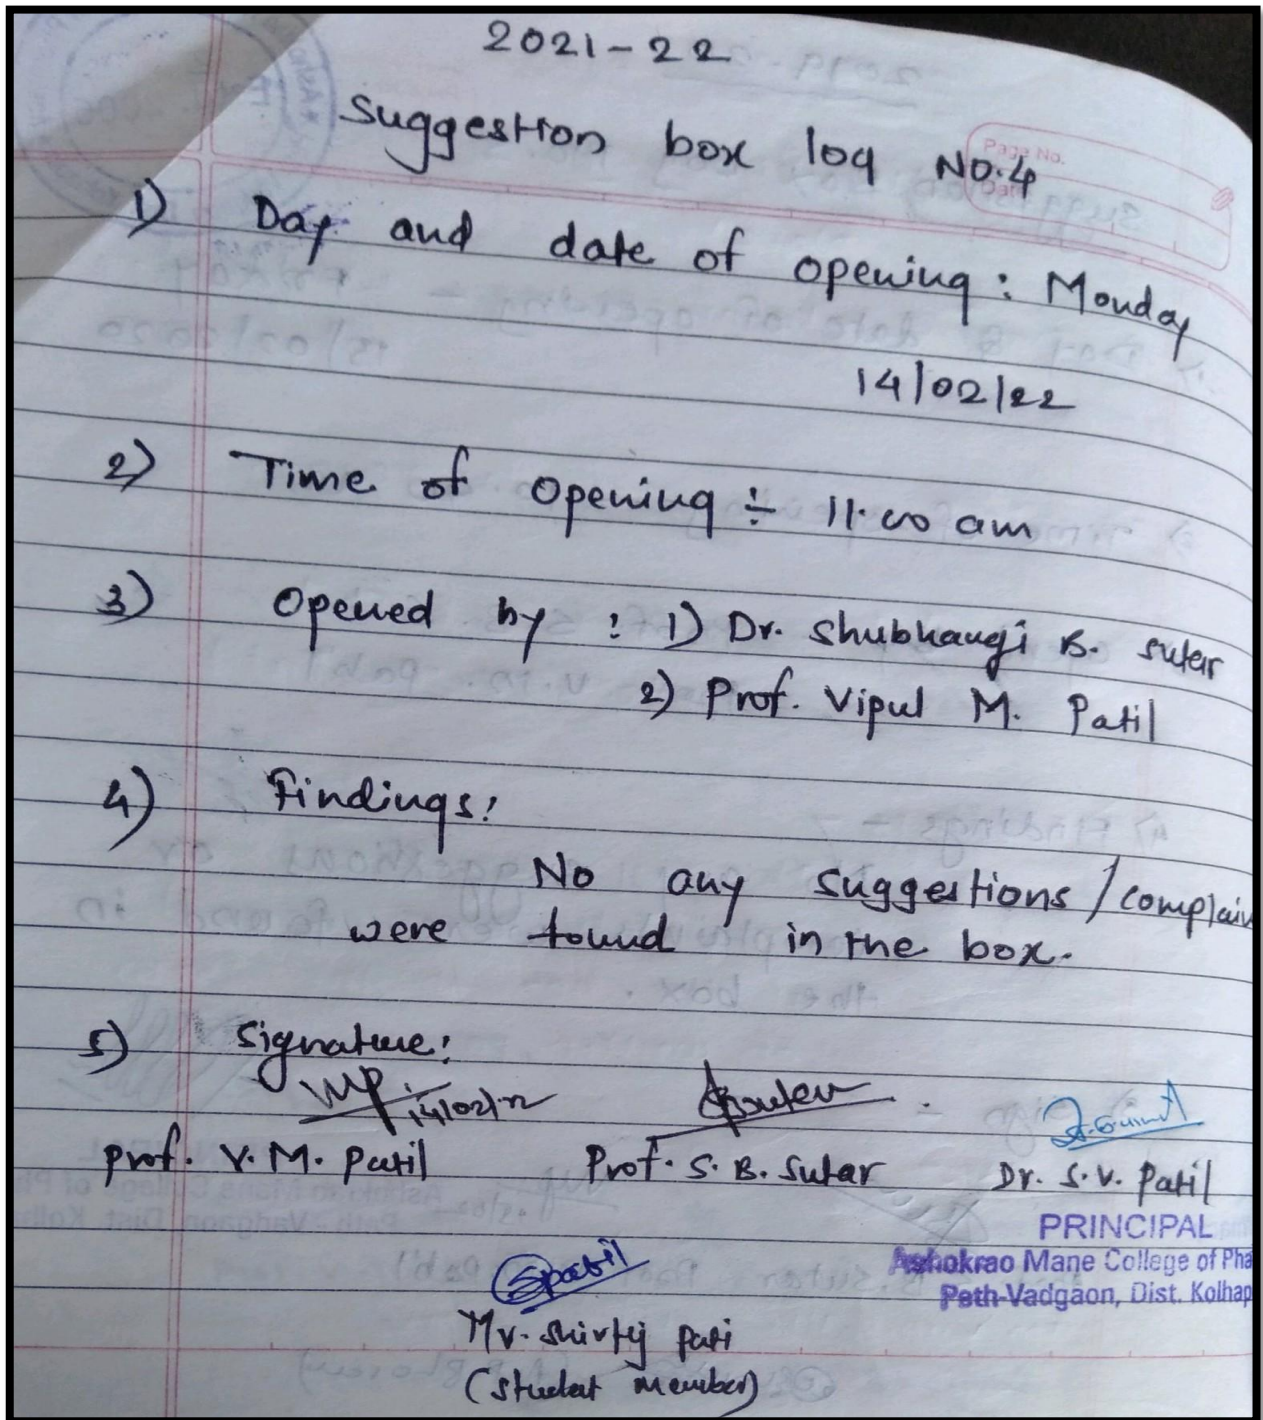 2021-22
Suggestion box log No.4
Page No.
Date
1) Day and date of opening : Monday
14/02/22
2) Time of opening ÷ 11.00 am
3) Opened by : 1) Dr. Shubhangi B. Sutar
2) Prof. Vipul M. Patil
4) Findings:
No any suggestions / complain
were found in the box.
5) Signature:
14/02/22
Prof. V. M. Patil Prof. S. B. Sutar Dr. S. V. Patil
PRINCIPAL
Ashokrao Mane College of Pha
Peth-Vadgaon, Dist. Kolhap
Spatil
Mr. Patil
(Student Member)